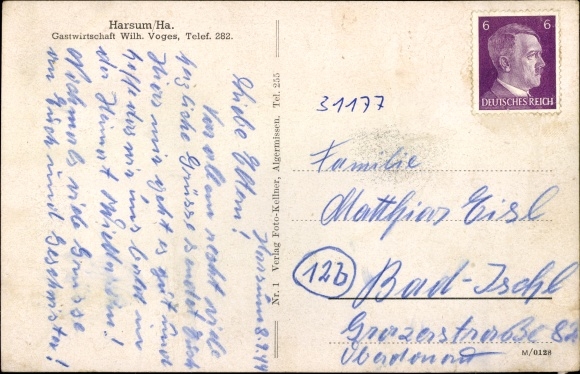 Harsum/Ha.
Gastwirtschaft Wilh. Voges, Telef. 282.
Harsum 8.2.44
Liebe Eltern!
Vor allem recht viele
herzliche Grüsse sendet Euch
Ihres mir geht es gut und
hoffe das wir uns bald in
der Heimat
Nochmals viele Grüsse
an Euch und Geschwister!
Nr. 1 Verlag Foto-Kellner, Algermissen. Tel. 255
6 6
DEUTSCHES REICH
31177
Familie
Matthias Eisl
12b Bad-Ischl
Grazerstraße 82
Oberdonau
M/0128